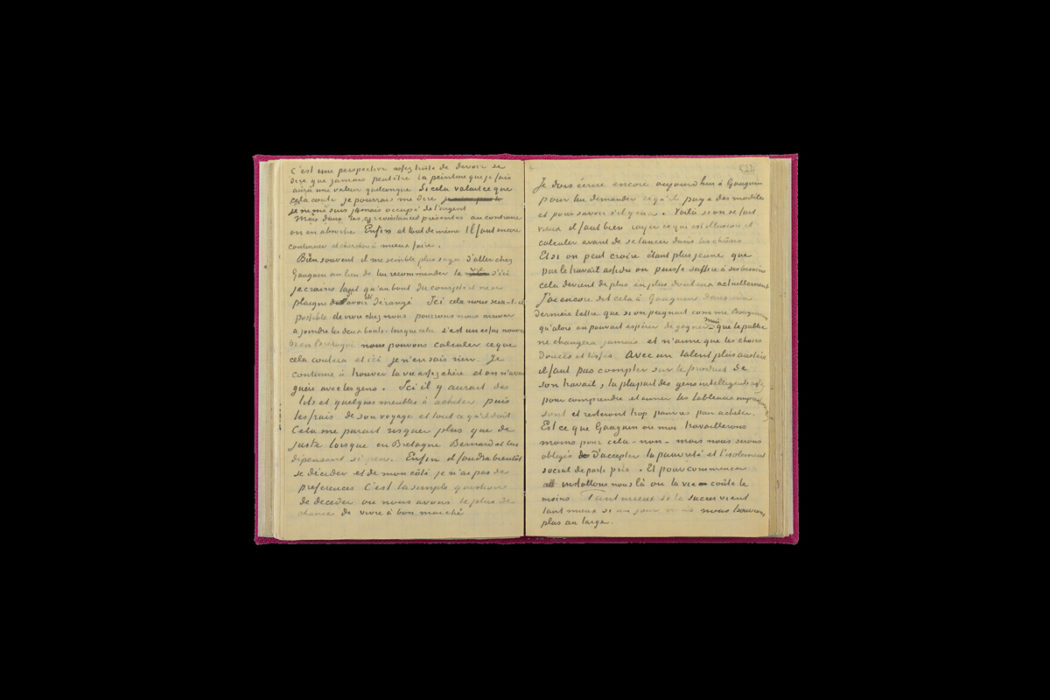 C'est une perspective assez triste de devoir se
dire que jamais peutêtre la peinture que je fais
aura une valeur quelconque. Si cela valait ce que
cela coute je pourrais me dire
je ne me suis jamais occupé de l'argent
Mais dans les circonstances présentes au contraire
on en absorbe. Enfin et tout de même il faut encore
continuer et chercher à mieux faire.
Bien souvent il me semble plus sage d'aller chez
Gauguin au lieu de lui recommander la vie d'ici
je crains tant qu'au bout du compte il ne se
plaigne d'avoir été dérangé. Ici cela nous sera-t-il
possible de vivre chez nous pourrons nous arriver
a joindre les deux bouts. lorsque cela c'est un essai nouveau
Or en Bretagne nous pouvons calculer ce que
cela coutera et ici je n'en sais rien. Je
continue à trouver la vie assez chère et on n'avance
guère avec les gens. Ici il y aurait des
lits et quelques meubles à acheter puis
les frais de son voyage et tout ce qu'il doit.
Cela me parait risquer plus que de
juste lorsque en Bretagne Bernard et lui
dépensent si peu. Enfin il faudra bientôt
se décider et de mon côté je n'ai pas de
preferences. C'est la simple question
de decider où nous avons le plus de
chance de vivre à bon marché
Je dois écrire encore aujourd'hui à Gauguin
pour lui demander ce qu'il paye des modèles
et pour savoir s'il y en a. Voilà si on se fait
vieux il faut bien rayer ce qui est illusion et
calculer avant de se lancer dans les choses.
Et si on peut croire étant plus jeune que
par le travail assidu on puisse suffire à ses besoins
cela devient de plus en plus douteux actuellement
J'ai encore dit cela à Gauguin dans ma
dernière lettre que si on peignait comme Bouguereau
qu'alors on pouvait espérer de gagner mais que le public
ne changera jamais et n'aime que les choses
douces et lisses. Avec un talent plus austère
il faut pas compter sur le produit de
son travail, la plupart des gens intelligents assez
pour comprendre et aimer les tableaux impressionistes
sont et resteront trop pauvres pour acheter.
Est ce que Gauguin ou moi travaillerons
moins pour cela - non - mais nous serons
obligés d'accepter la pauvreté et l'isolement
social de parti pris. Et pour commencer
installons nous là où la vie coûte le
moins. Tant mieux si le succès vient
tant mieux si un jour nous nous trouvions
plus au large.